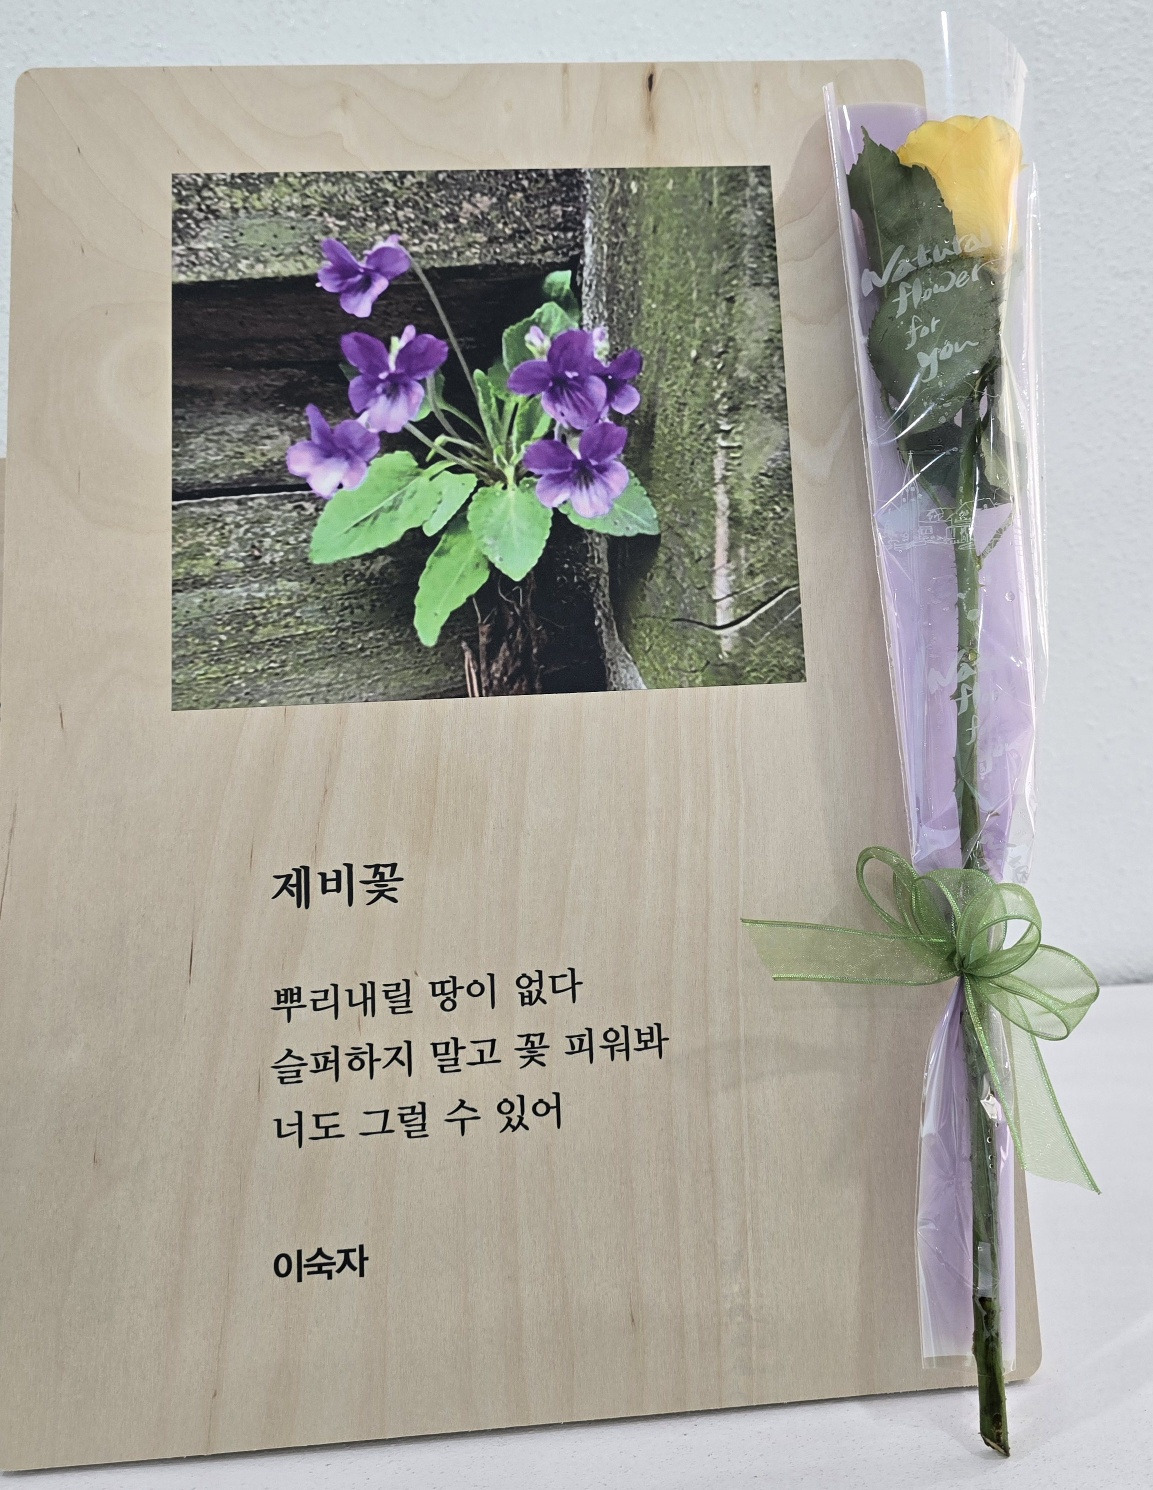 제비꽃
뿌리내릴 땅이 없다
슬퍼하지 말고 꽃 피워봐
너도 그럴 수 있어
이숙자
Natural
flower
for
you